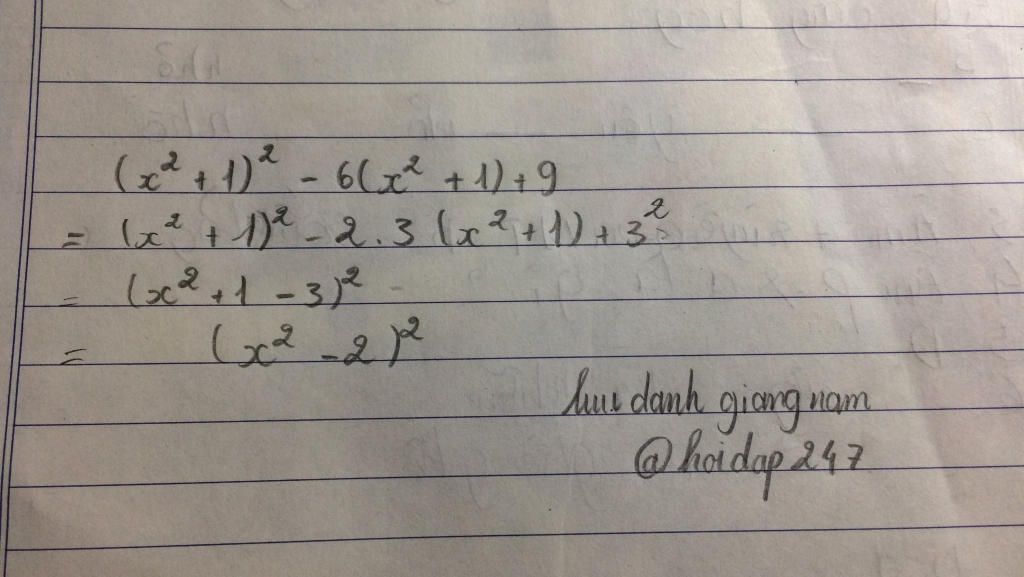 (x² + 1)² - 6(x² + 1) + 9
= (x² + 1)² - 2.3 (x² + 1) + 3²
= (x² + 1 - 3)²
= (x² - 2)²
lưu danh giang nam
@hoidap247